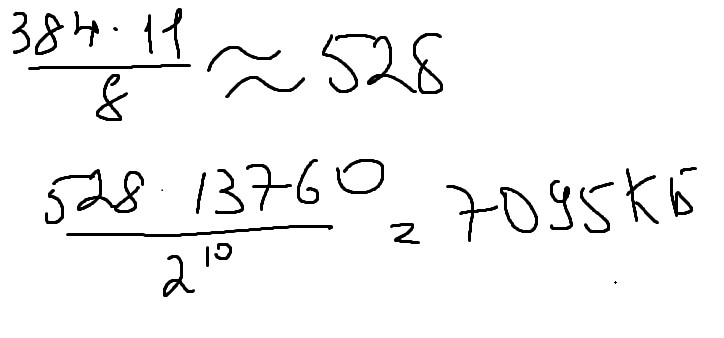 384 · 11 / 8 ≈ 528
528 · 13760 / 2^10 = 7095 КБ